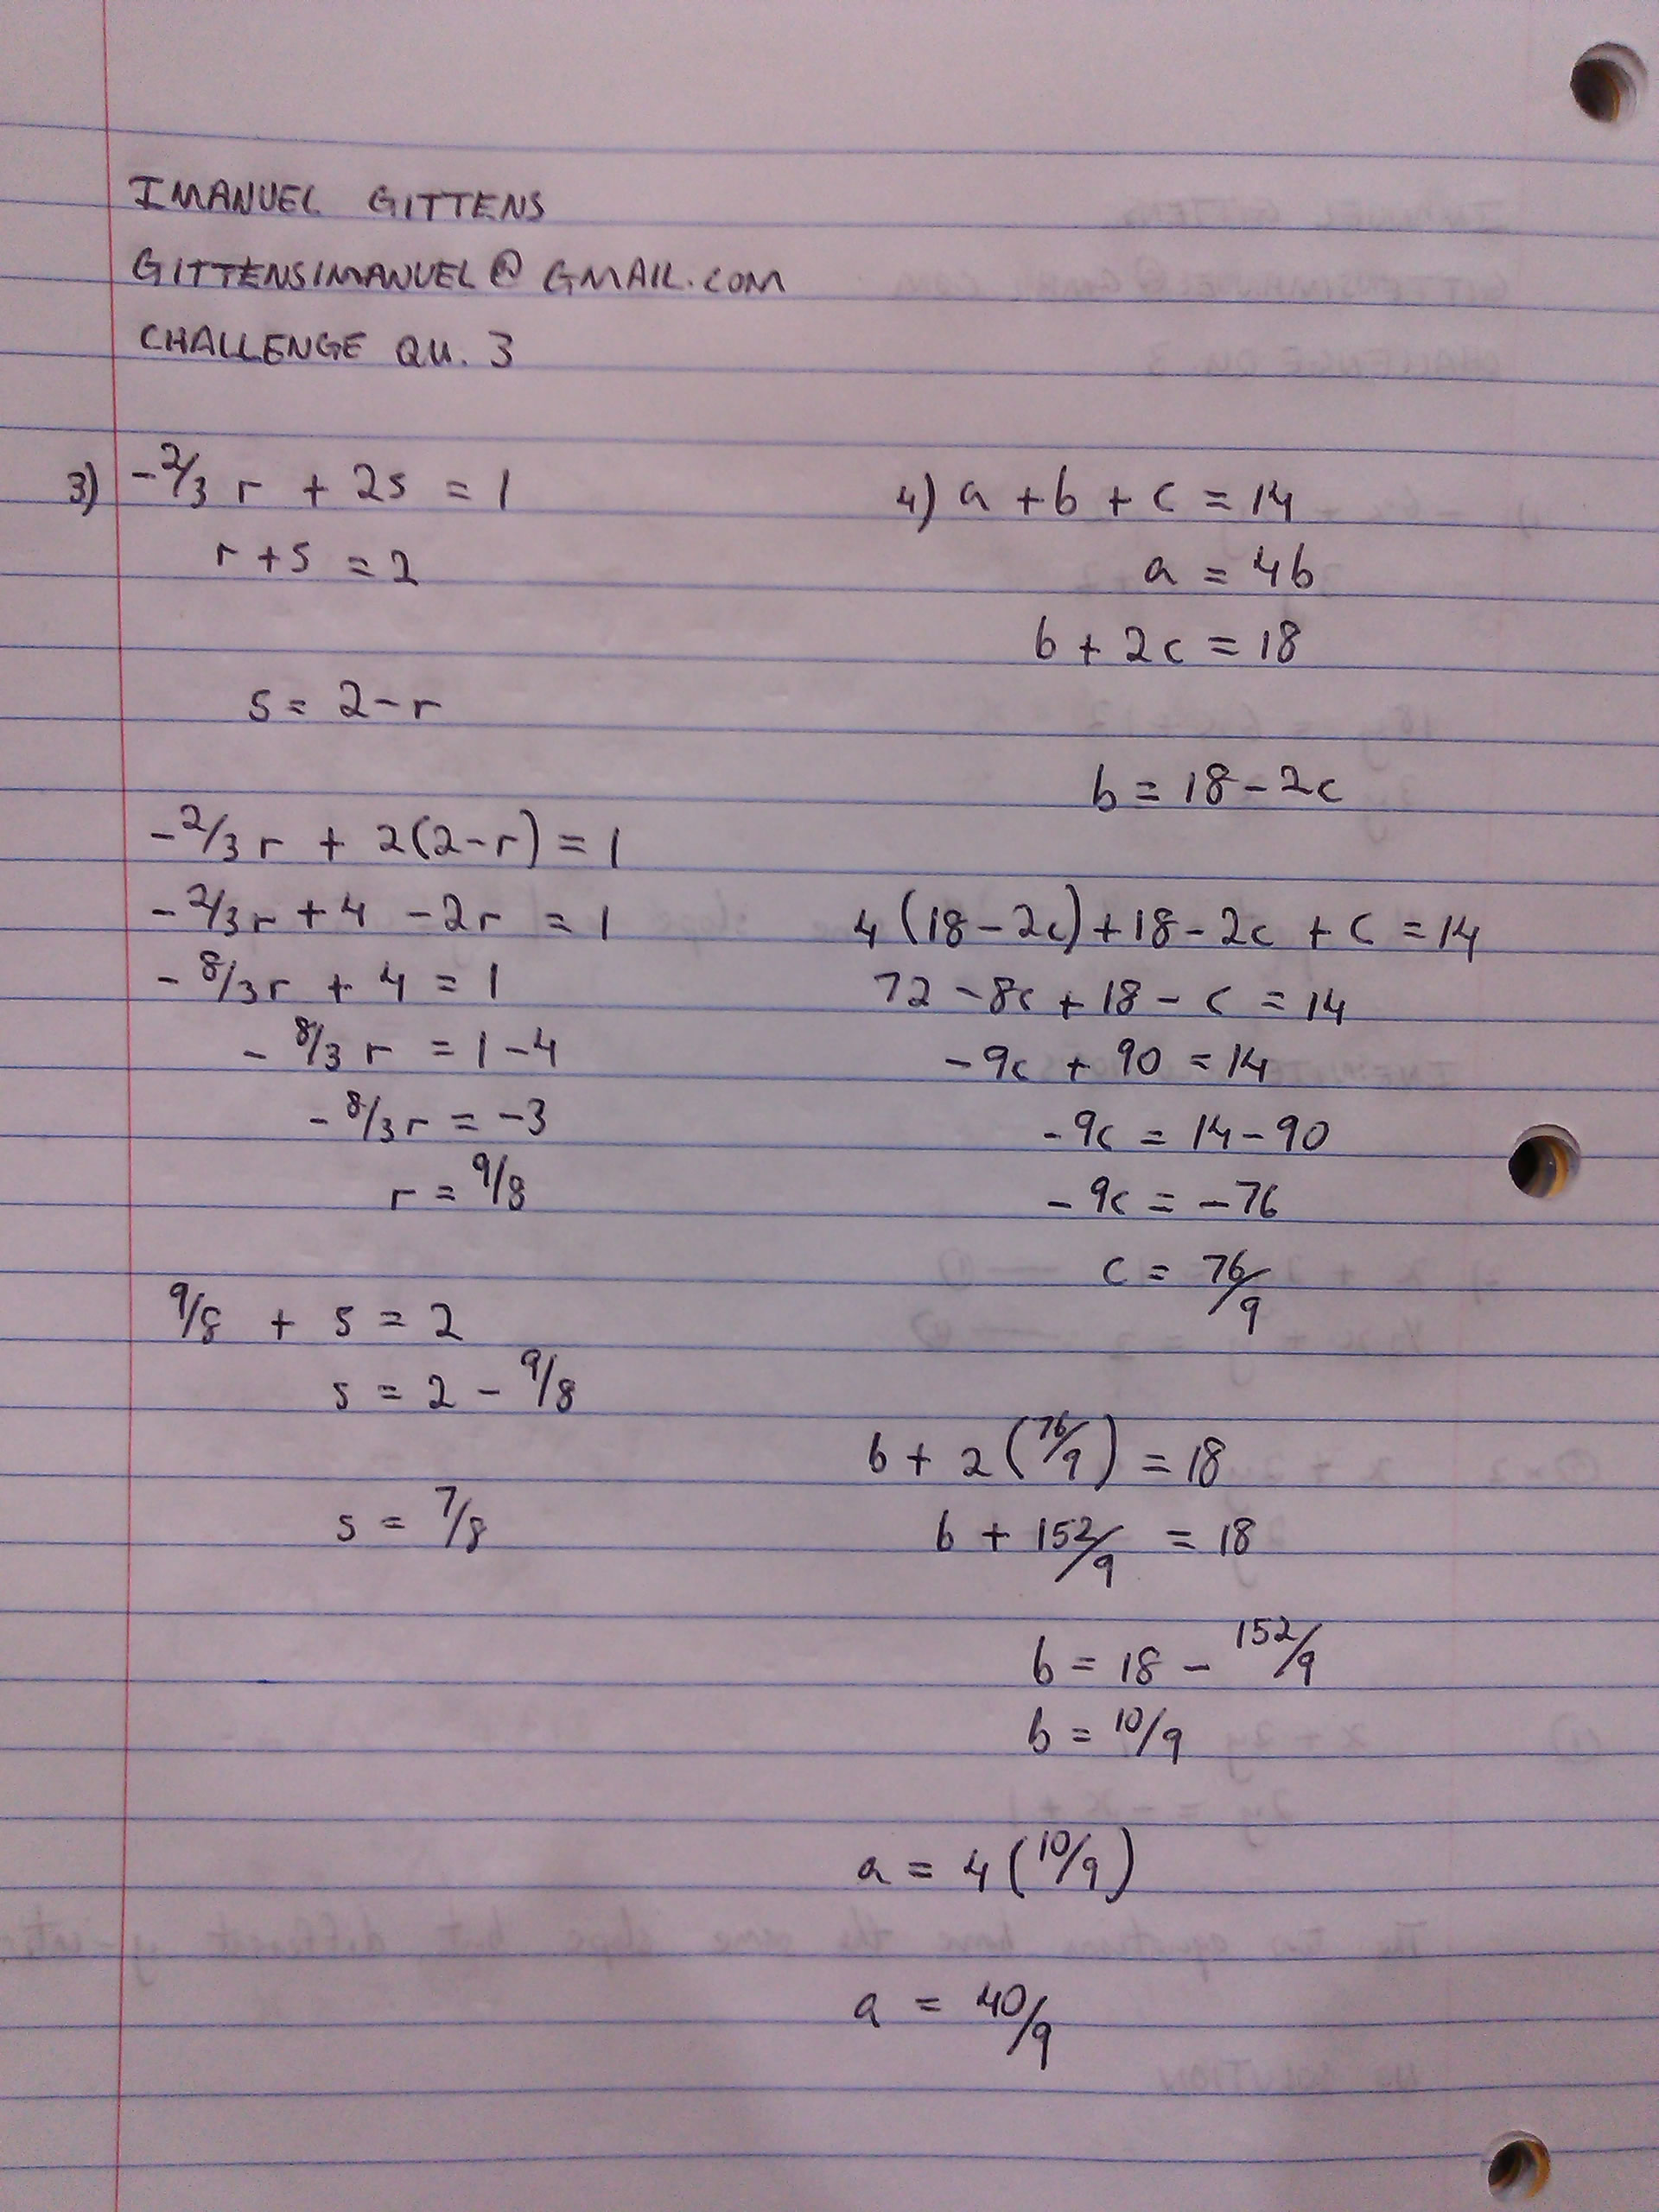 IMANUEL GITTENS
GITTENSIMANUEL@GMAIL.COM
CHALLENGE QU. 3
3) -2/3 r + 2s = 1
r + s = 2
s = 2 - r
-2/3 r + 2(2-r) = 1
-2/3 r + 4 - 2r = 1
-8/3 r + 4 = 1
-8/3 r = 1 - 4
-8/3 r = -3
r = 9/8
9/8 + s = 2
s = 2 - 9/8
s = 7/8
4) a + b + c = 14
a = 4b
b + 2c = 18
b = 18 - 2c
4(18-2c) + 18 - 2c + c = 14
72 - 8c + 18 - c = 14
-9c + 90 = 14
-9c = 14 - 90
-9c = -76
c = 76/9
b + 2(76/9) = 18
b + 152/9 = 18
b = 18 - 152/9
b = 10/9
a = 4(10/9)
a = 40/9